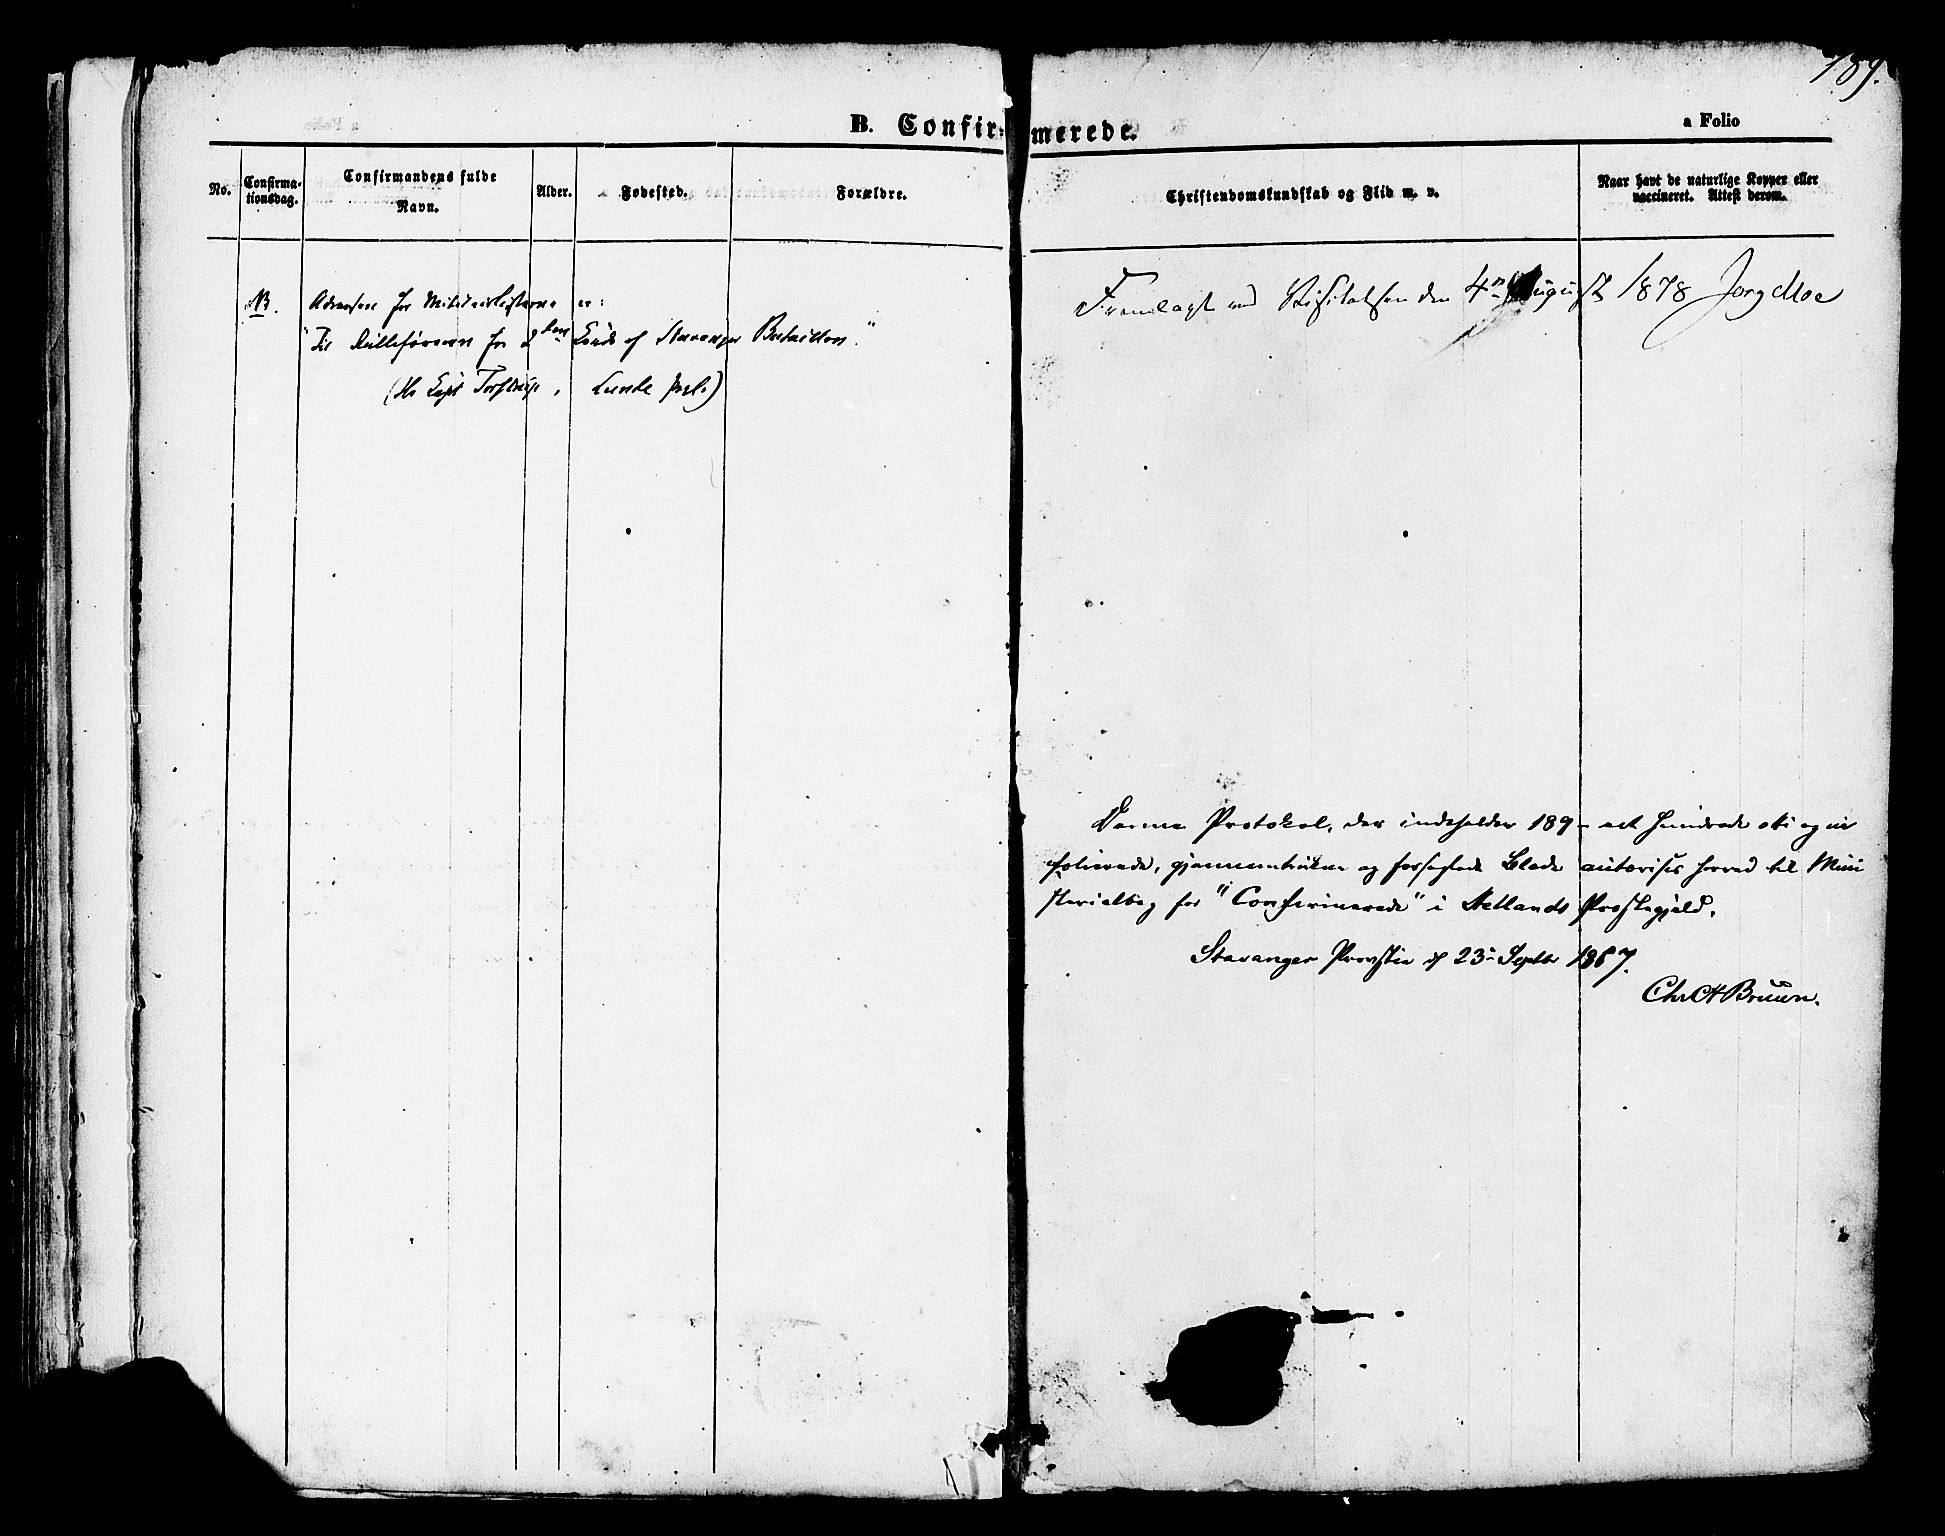 189.
B. Confir-merede.
a Folio
No.
Confirma-
tionsdag.
Confirmandens fulde
Navn.
Alder.
Fødested.
Forældre.
Christendomskundskab og Flid m. v.
Naar havt de naturlige Kopper eller
vaccineret. Attest derom.
NB. Adressen for Militairlisterne er:
"Til Rulleføreren for 2den Linie af Stavanger Bataillon."
(Hr Capt Torstrup, Lunde
Fremlagt ved Visitatsen den 4de August 1878 Jørg Moe
Denne Protokol, der indeholder 189 - et hundrede otti og ni
folierede, gjennemtrukne og forseglede Blade autoriseres herved til Mini
sterialbog for "Confirmerede" i Hetlands Præstegjeld.
Stavanger Provstie d 23 Septbr 1867.
Chr A Bruun.